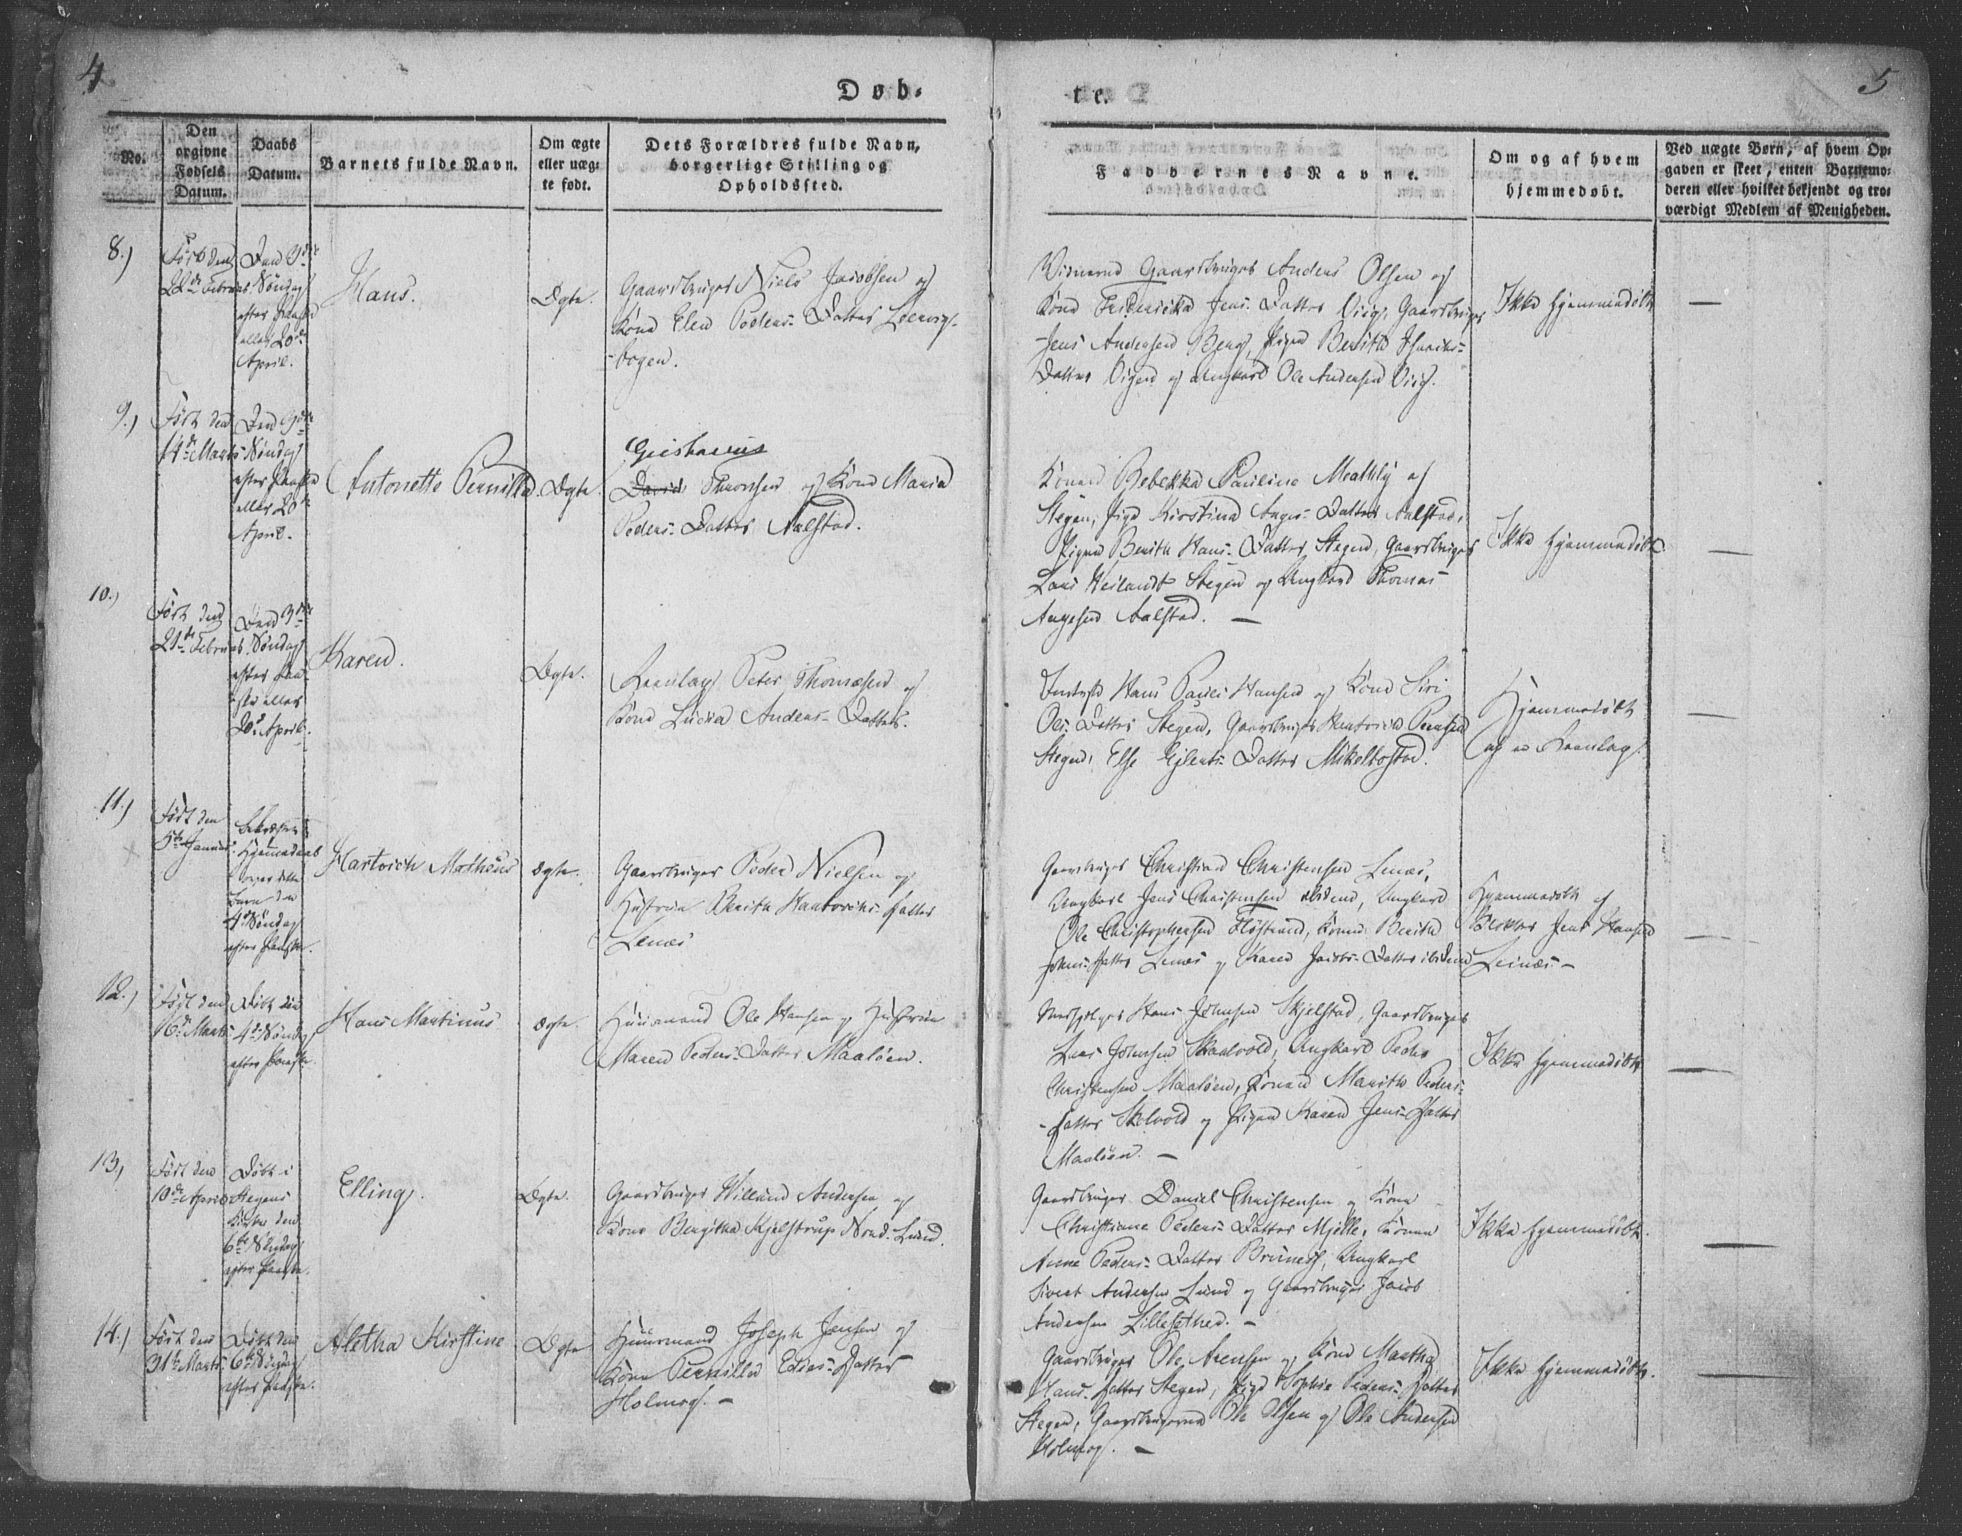 4
Døb-
te.
5
No.
Den
orgivne
Fødsels
Datum.
Daabs
Datum.
Barnets fulde Navn.
Om ægte
eller uæg-
te født.
Dets Forældres fulde Navn,
borgerlige Stilling og
Opholdssted.
Faddernes Navne.
Om og af hvem
hjemmedøbt.
Ved uægte Børn, af hvem Op-
gaven er skeet, enten Barnemo-
deren eller hvilket bekjendt og tro-
værdigt Medlem af Menigheden.
8.)
Født den
22de Februar
Den 3die
Søndag
efter Paaske
eller 20de
April.
Hans.
Ægte.
Gaardbruger Niels Jacobsen og
Kone Elen Peders-Datter
bogen.
Gaardbruger Anders Olsen og
Kone Friderikka Jens-Datter Gaardbruger
Jens Andersen Pigen Berith
Datter og Ungkarl Ole Andersen
Ikke hjemmedøbt
9.)
Født den
14de Marts
Den 3die
Søndag
efter Paaske
eller 20de
April.
Antonette Pernilla
Ægte.
David Thomsen og Kone Maria
Peders-Datter Aalstad.
Konen Rebekka Pauline af
Stegen, Pige Kirstina Datter Aalstad,
Pigen Berith Hans-Datter Stegen, Gaardbruger
Lars Stegen og Ungkarl Thomas
Aalstad. —
Ikke hjemmedøbt
10.)
Født den
21de Februar
Den 3die
Søndag
efter Paa-
ske eller
20de April.
Karen.
Ægte.
Peter Thomesen og
Kone Lucia Anders-Datter.
Hans Hansen og Kone Siri
Ols-Datter Stegen, Gaardbruger
Stegen, Else Datter Mikelbostad.
Hjemmedøbt
11.)
Født den
5te Januar
Hjemmedaab
over dette
Barn den
4de Søndag
efter Paaske.
Hartvich Matheus
Ægte.
Gaardbruger Peder Nielsen og
Hustrue Berith Hartvichs-Datter
Lenæs
Gaardbruger Christian Christensen Lenæs,
Ungkarl Jens Christensen ibidem, Ungkarl
Ole Christophersen Konen Berith
Johns-Datter Lenæs og Karen Jacobs-Datter ibidem
Hjemmedøbt af
Jens Hansen
Leinæs. —
12.)
Født den
16de Marts
Døbt den
4de Søndag
efter Paaske.
Hans Martinus
Ægte.
Huusmand Ole Hansen og Hustrue
Maren Peders-Datter Maaløen.
Hans Johnsen Skjelstad, Gaardbruger
Lars Johnsen Ungkarl Peder
Christensen Maaløen, Konen Marith Peders-
Datter og Pigen Karen Jens-Datter
Maaløen. —
Ikke hjemmedøbt
13.)
Født den
10de April
Døbt i
Stegens
Kirke den
6te Søndag
efter Paaske.
Elling.
Ægte.
Gaardbruger Willand Andersen og
Kone Bergitha Kjelstrup Nord-Lund.
Gaardbruger Daniel Christensen og Kone
Christiane Peders-Datter Mjelle, Konen
Anne Peders-Datter Brunes, Ungkarl
Sivert Andersen Lund og Gaardbruger Jacob
Andersen —
Ikke hjemmedøbt.
14.)
Født den
31te Marts
Døbt den
6te Søndag
efter Paaske.
Aletha Kirstine
Ægte
Huusmand Joseph Jensen og
Kone Pernilla Datter
Holmog. —
Gaardbruger Ole Arensen og Kone Martha
Hans-Datter Stegen, Pige Sophie Peders-Datter
Stegen, Gaardbrugerne Ole Olsen og Ole Andersen
Holmog. —
Ikke hjemmedøbt.